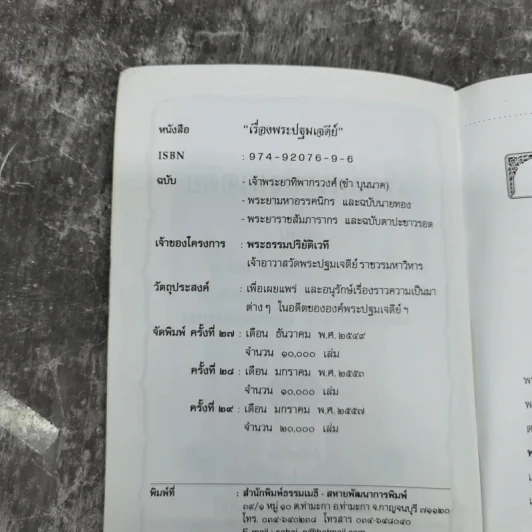 หนังสือ "เรื่องพระปฐมเจดีย์"
ISBN : 974-92076-9-6
ฉบับ - เจ้าพระยาทิพากรวงศ์ (ขำ บุนนาค)
- พระยามหาอรรคนิกร และฉบับนายทอง
- พระยาราชสัมภารากร และฉบับตาปะขาวรอด
เจ้าของโครงการ : พระธรรมปริยัติเวที
เจ้าอาวาสวัดพระปฐมเจดีย์ ราชวรมหาวิหาร
วัตถุประสงค์ : เพื่อเผยแพร่ และอนุรักษ์เรื่องราวความเป็นมา
ต่าง ๆ ในอดีตขององค์พระปฐมเจดีย์ ฯ
จัดพิมพ์ ครั้งที่ ๒๗ : เดือน ธันวาคม พ.ศ. ๒๕๔๙
จำนวน ๑๐,๐๐๐ เล่ม
ครั้งที่ ๒๘ : เดือน มกราคม พ.ศ. ๒๕๕๓
จำนวน ๑๐,๐๐๐ เล่ม
ครั้งที่ ๒๙ : เดือน มกราคม พ.ศ. ๒๕๕๗
จำนวน ๒๐,๐๐๐ เล่ม
พิมพ์ที่ : สำนักพิมพ์ธรรมเมธี - สหายพัฒนาการพิมพ์
๐๙/๑ หมู่ ๑๐ ต.ท่ามะกา อ.ท่ามะกา จ.กาญจนบุรี ๗๑๑๒๐
โทร. ๐๓๔-๖๔๐๒๓๘ โทรสาร ๐๓๔-๖๔๘๐๔๐
E-mail :